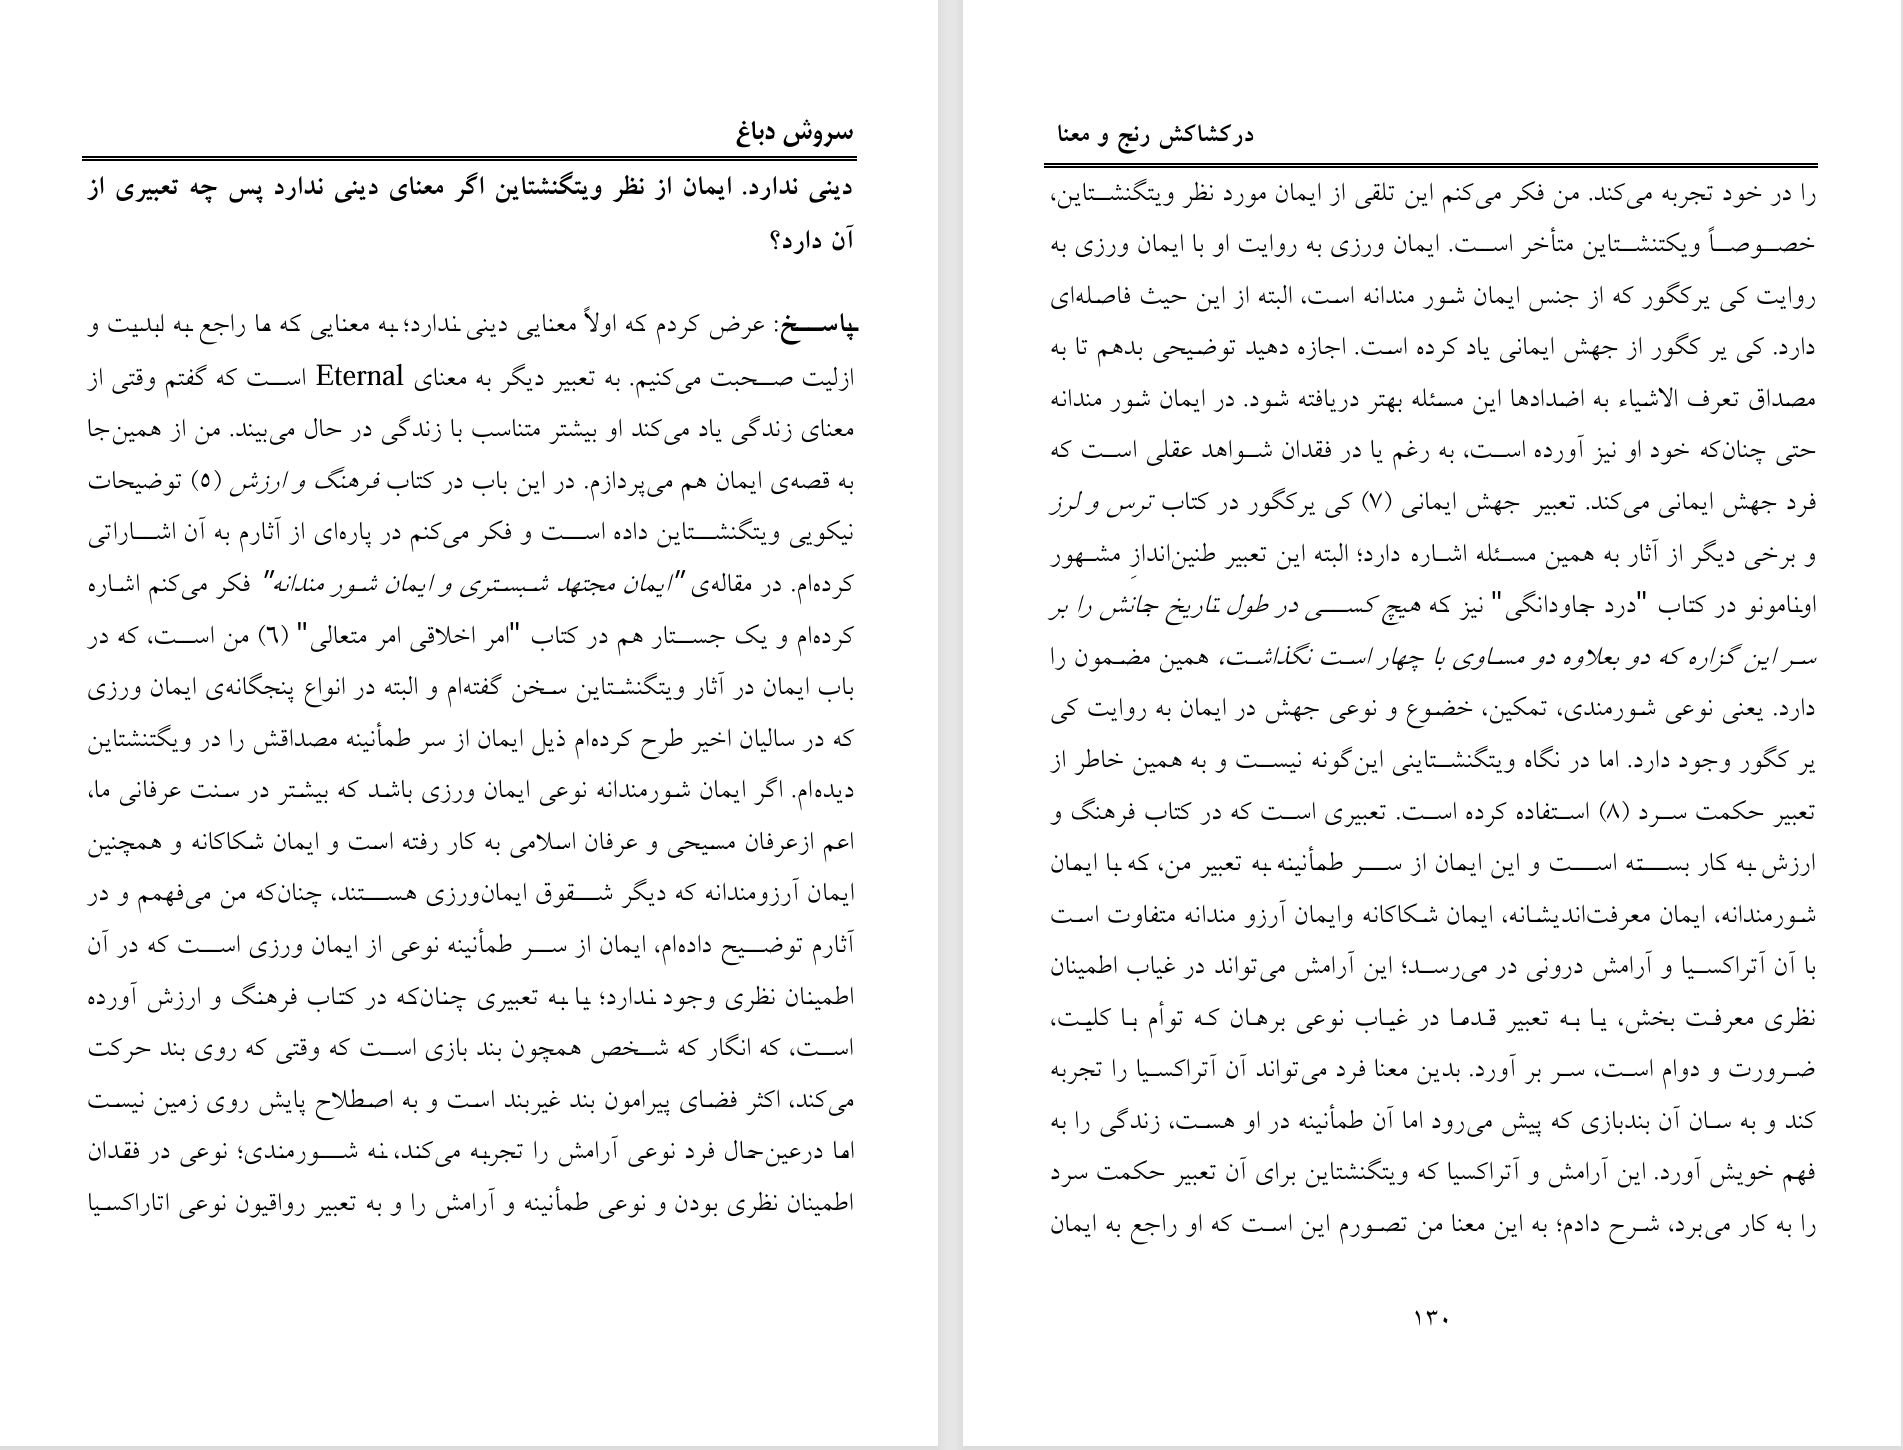 سروش دباغ
دینی ندارد. ایمان از نظر ویتگنشتاین اگر معنای دینی ندارد پس چه تعبیری از
آن دارد؟
پاسخ: عرض کردم که اولاً معنایی دینی ندارد؛ به معنایی که ما راجع به ابدیت و
ازلیت صحبت می‌کنیم. به تعبیر دیگر به معنای Eternal است که گفتم وقتی از
معنای زندگی یاد می‌کند او بیشتر متناسب با زندگی در حال می‌بیند. من از همین‌جا
به قصه‌ی ایمان هم می‌پردازم. در این باب در کتاب فرهنگ و ارزش (۵) توضیحات
نیکویی ویتگنشتاین داده است و فکر می‌کنم در پاره‌ای از آثارم به آن اشاراتی
کرده‌ام. در مقاله‌ی "ایمان مجتهد شبستری و ایمان شور مندانه" فکر می‌کنم اشاره
کرده‌ام و یک جستار هم در کتاب "امر اخلاقی امر متعالی" (۶) من است، که در
باب ایمان در آثار ویتگنشتاین سخن گفته‌ام و البته در انواع پنجگانه‌ی ایمان ورزی
که در سالیان اخیر طرح کرده‌ام ذیل ایمان از سر طمأنینه مصداقش را در ویگتنشتاین
دیده‌ام. اگر ایمان شورمندانه نوعی ایمان ورزی باشد که بیشتر در سنت عرفانی ما،
اعم ازعرفان مسیحی و عرفان اسلامی به کار رفته است و ایمان شکاکانه و همچنین
ایمان آرزومندانه که دیگر شقوق ایمان‌ورزی هستند، چنان‌که من می‌فهمم و در
آثارم توضیح داده‌ام، ایمان از سر طمأنینه نوعی از ایمان ورزی است که در آن
اطمینان نظری وجود ندارد؛ یا به تعبیری چنان‌که در کتاب فرهنگ و ارزش آورده
است، که انگار که شخص همچون بند بازی است که وقتی که روی بند حرکت
می‌کند، اکثر فضای پیرامون بند غیربند است و به اصطلاح پایش روی زمین نیست
اما درعین‌حال فرد نوعی آرامش را تجربه می‌کند، نه شورمندی؛ نوعی در فقدان
اطمینان نظری بودن و نوعی طمأنینه و آرامش را و به تعبیر رواقیون نوعی اتاراکسیا
درکشاکش رنج و معنا
را در خود تجربه می‌کند. من فکر می‌کنم این تلقی از ایمان مورد نظر ویتگنشتاین،
خصوصاً ویکتنشتاین متأخر است. ایمان ورزی به روایت او با ایمان ورزی به
روایت کی یرکگور که از جنس ایمان شور مندانه است، البته از این حیث فاصله‌ای
دارد. کی یر کگور از جهش ایمانی یاد کرده است. اجازه دهید توضیحی بدهم تا به
مصداق تعرف الاشیاء به اضدادها این مسئله بهتر دریافته شود. در ایمان شور مندانه
حتی چنان‌که خود او نیز آورده است، به رغم یا در فقدان شواهد عقلی است که
فرد جهش ایمانی می‌کند. تعبیر جهش ایمانی (۷) کی یرکگور در کتاب ترس و لرز
و برخی دیگر از آثار به همین مسئله اشاره دارد؛ البته این تعبیر طنین‌اندازِ مشهور
اونامونو در کتاب "درد جاودانگی" نیز که هیچ کسی در طول تاریخ جانش را بر
سر این گزاره که دو بعلاوه دو مساوی با چهار است نگذاشت، همین مضمون را
دارد. یعنی نوعی شورمندی، تمکین، خضوع و نوعی جهش در ایمان به روایت کی
یر کگور وجود دارد. اما در نگاه ویتگنشتاینی این‌گونه نیست و به همین خاطر از
تعبیر حکمت سرد (۸) استفاده کرده است. تعبیری است که در کتاب فرهنگ و
ارزش به کار بسته است و این ایمان از سر طمأنینه به تعبیر من، که با ایمان
شورمندانه، ایمان معرفت‌اندیشانه، ایمان شکاکانه وایمان آرزو مندانه متفاوت است
با آن آتراکسیا و آرامش درونی در می‌رسد؛ این آرامش می‌تواند در غیاب اطمینان
نظری معرفت بخش، یا به تعبیر قدما در غیاب نوعی برهان که توأم با کلیت،
ضرورت و دوام است، سر بر آورد. بدین معنا فرد می‌تواند آن آتراکسیا را تجربه
کند و به سان آن بندبازی که پیش می‌رود اما آن طمأنینه در او هست، زندگی را به
فهم خویش آورد. این آرامش و آتراکسیا که ویتگنشتاین برای آن تعبیر حکمت سرد
را به کار می‌برد، شرح دادم؛ به این معنا من تصورم این است که او راجع به ایمان
۱۳۰